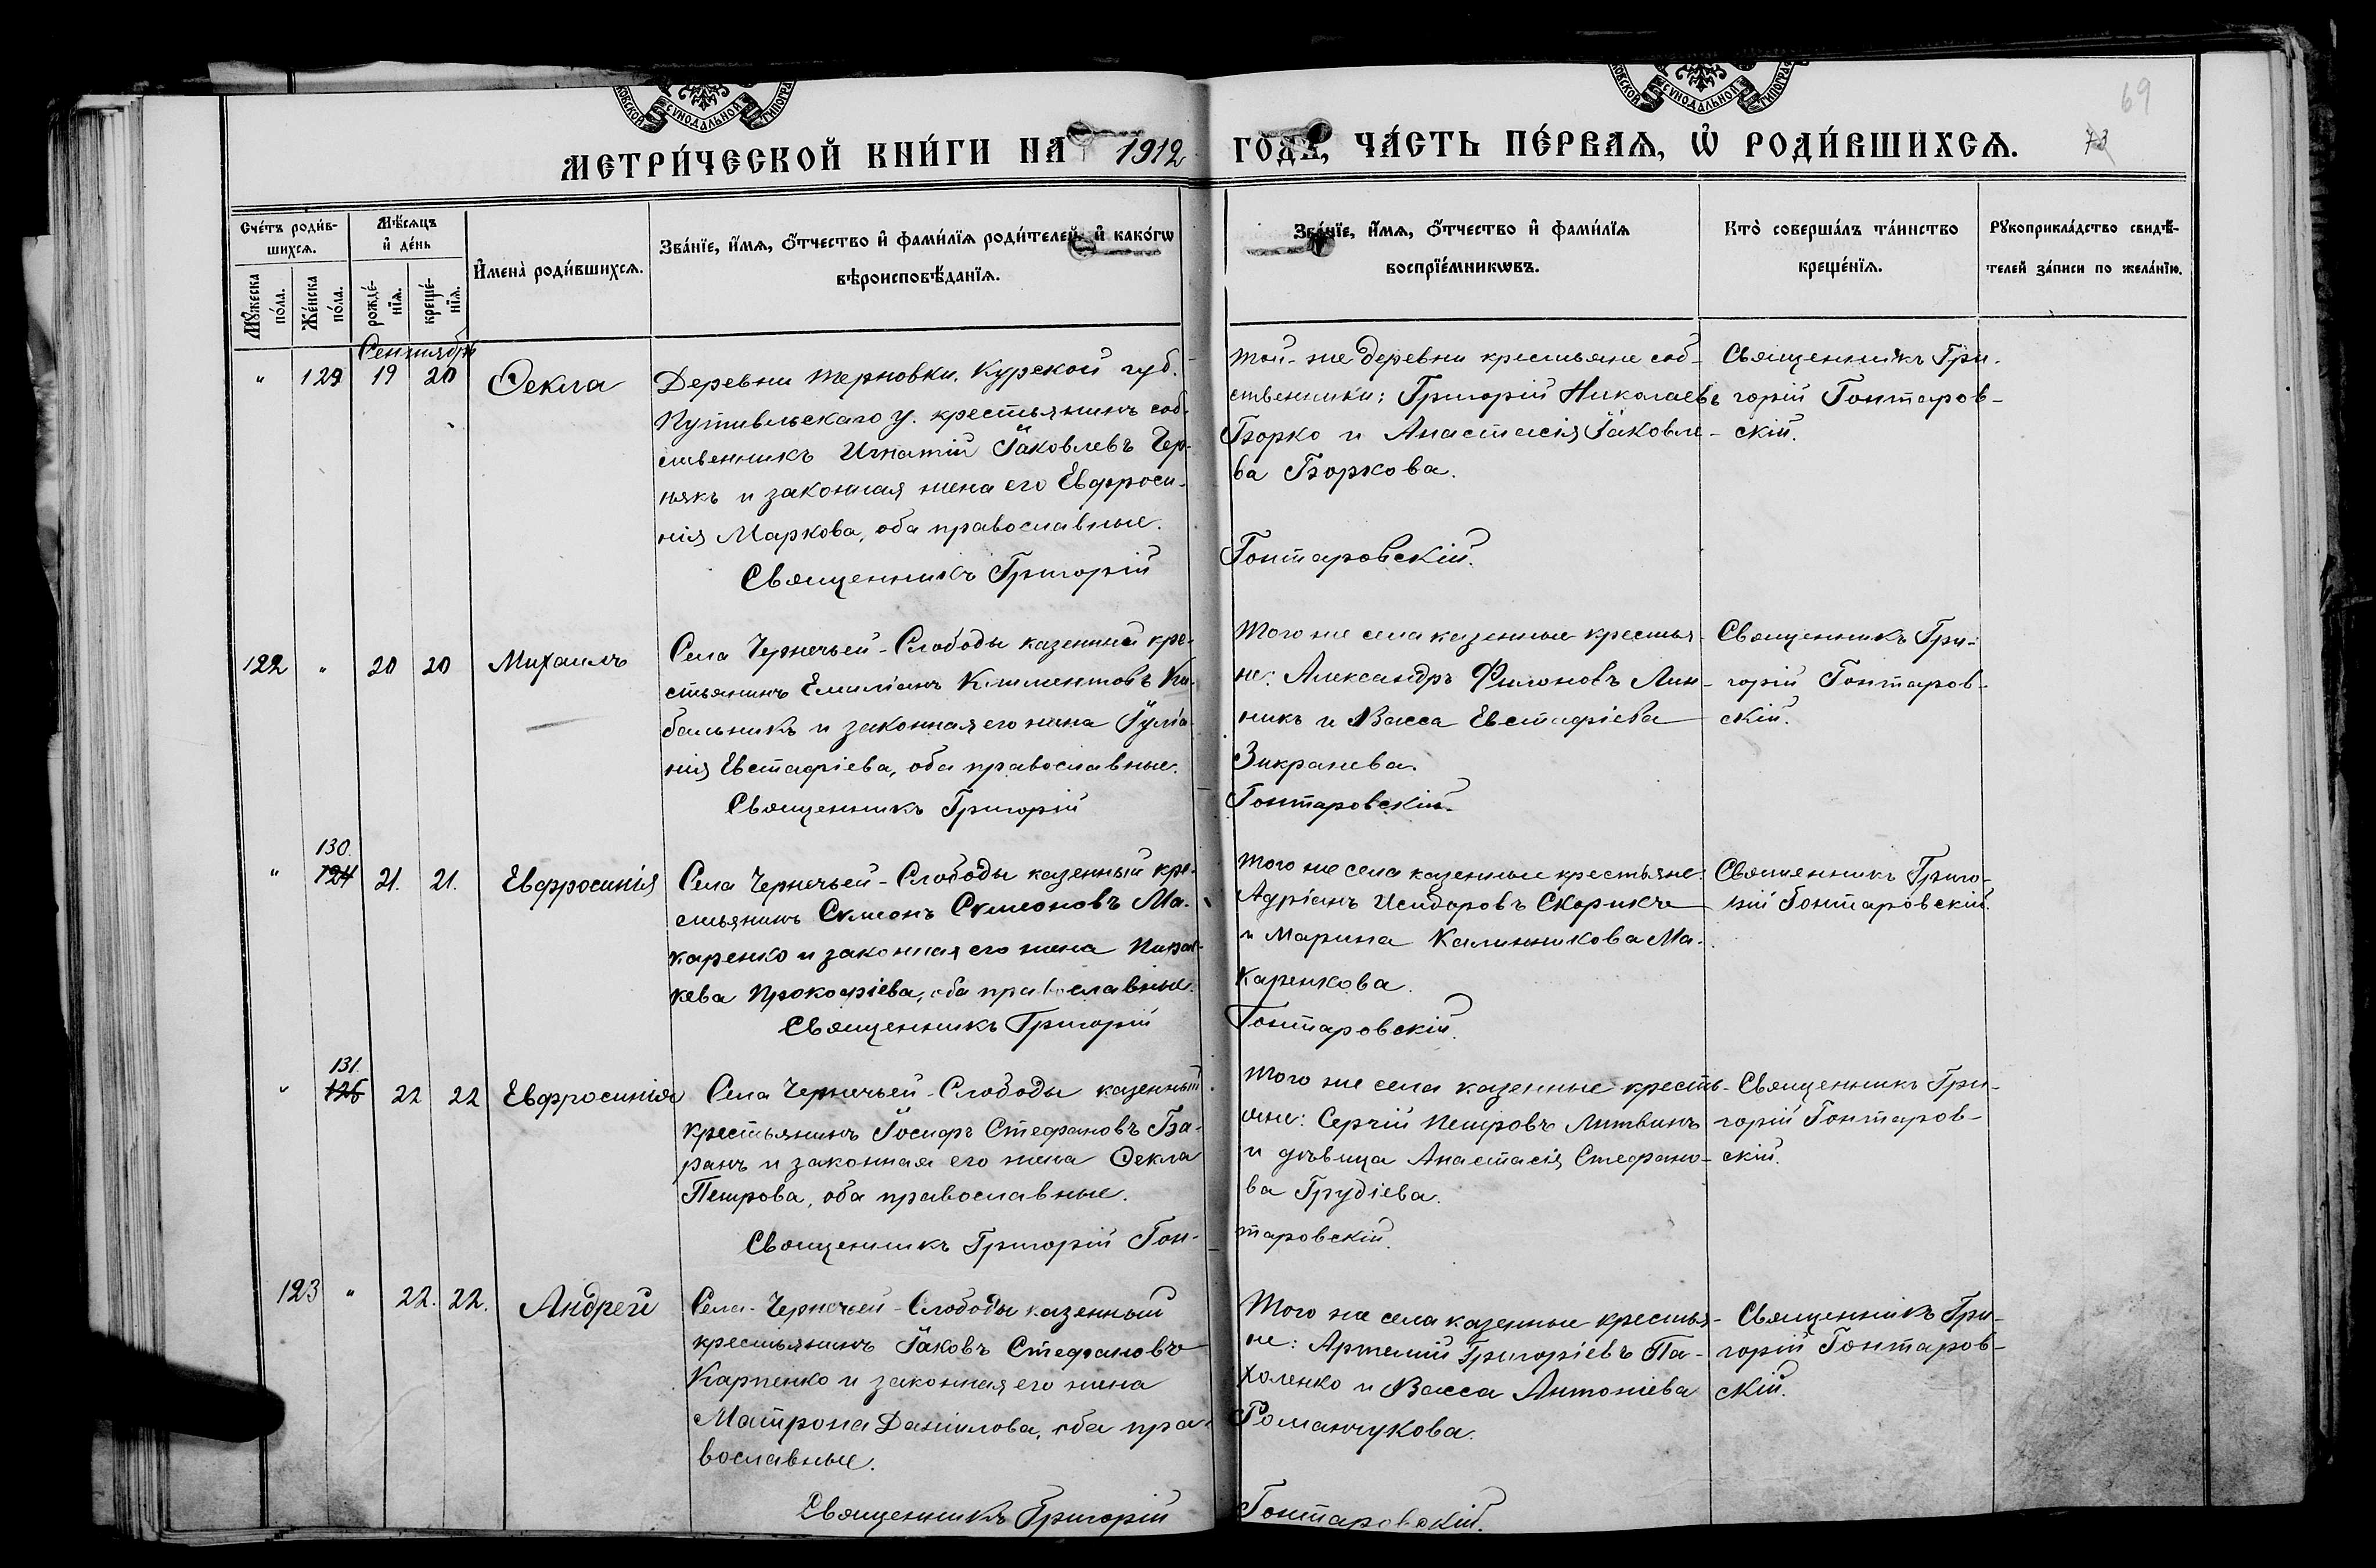 МЕТРИ́ЧЕСКОЙ КНИ́ГИ НА 1912 ГОДЪ, ЧА́СТЬ ПЕ́РВАѦ, Ѡ҆ РОДИ́ВШИХСѦ.
69
73
Сче́тъ роди́в-
шихсѧ.
Мꙋ́жеска
по́ла.
Же́нска
по́ла.
Мѣ́сѧцъ
и҆ де́нь
рожде́-
нїѧ.
креще́-
нїѧ.
И҆мена̀ роди́вшихсѧ.
Зва́нїе, и҆́мѧ, ѻ҆́тчество и҆ фами́лїѧ роди́телей, и҆ како́гѡ
вѣроисповѣ́данїѧ.
Зва́нїе, и҆́мѧ, ѻ҆́тчество и҆ фами́лїѧ
воспрїе́мникѡвъ.
Кто̀ соверша́лъ та́инство
креще́нїѧ.
Рꙋкоприкла́дство свидѣ́-
телей за́писи по жела́нїю.
Сентябрь
" 129 19 20 Ѳекла
Деревни Терновки, Курской губ.
Путивльскаго у. крестьянинъ соб-
ственникъ Игнатій Іаковлевъ Чер-
някъ и законная жена его Евфроси-
нія Маркова, оба православные.
Священникъ Григорій
Той-же деревни крестьяне соб-
ственники: Григорій Николаевъ
Борко и Анастасія Іаковле-
ва Боркова.
Гонтаровскій.
Священникъ Гри-
горій Гонтаров-
скій.
122 " 20 20 Михаилъ
Села Чернечьей-Слободы казенный кре-
стьянинъ Емиліанъ Климентовъ Ки-
бальникъ и законная его жена Іуліа-
нія Евстафіева, оба православные.
Священникъ Григорій
Того же села казенные крестья-
не: Александръ Филоновъ Лин-
никъ и Васса Евстафіева
Зикранева.
Гонтаровскій.
Священникъ Гри-
горій Гонтаров-
скій.
130.
" 124 21. 21. Евфросинія
Села Чернечьей-Слободы казенный кре-
стьянинъ Симеонъ Симеоновъ Ма-
каренко и законная его жена Парас-
кева Прокофіева, оба православные.
Священникъ Григорій
Того же села казенные крестьяне:
Адріанъ Исидоровъ Скорикъ
и Марина Калинникова Ма-
каренкова.
Гонтаровскій.
Священникъ Григо-
рій Гонтаровскій.
131
" 125 22 22 Евфросинія
Села Чернечьей-Слободы казенный
крестьянинъ Іосифъ Стефановъ Ба-
ранъ и законная его жена Ѳекла
Петрова, оба православные.
Священникъ Григорій Гон-
Того же села казенные кресть-
яне: Сергій Петровъ Литвинъ
и дѣвица Анастасія Стефано-
ва Грудіева.
таровскій.
Священникъ Гри-
горій Гонтаров-
скій.
123 " 22. 22. Андрей
Села-Чернечьей-Слободы казенный
крестьянинъ Іаковъ Стефановъ
Карпенко и законная его жена
Матрона Даніилова, оба пра-
вославные.
Священникъ Григорій
Того же села казенные крестья-
не: Артемій Григоріевъ Па-
холенко и Васса Антоніева
Романчукова.
Гонтаровскій.
Священникъ Гри-
горій Гонтаров-
скій.